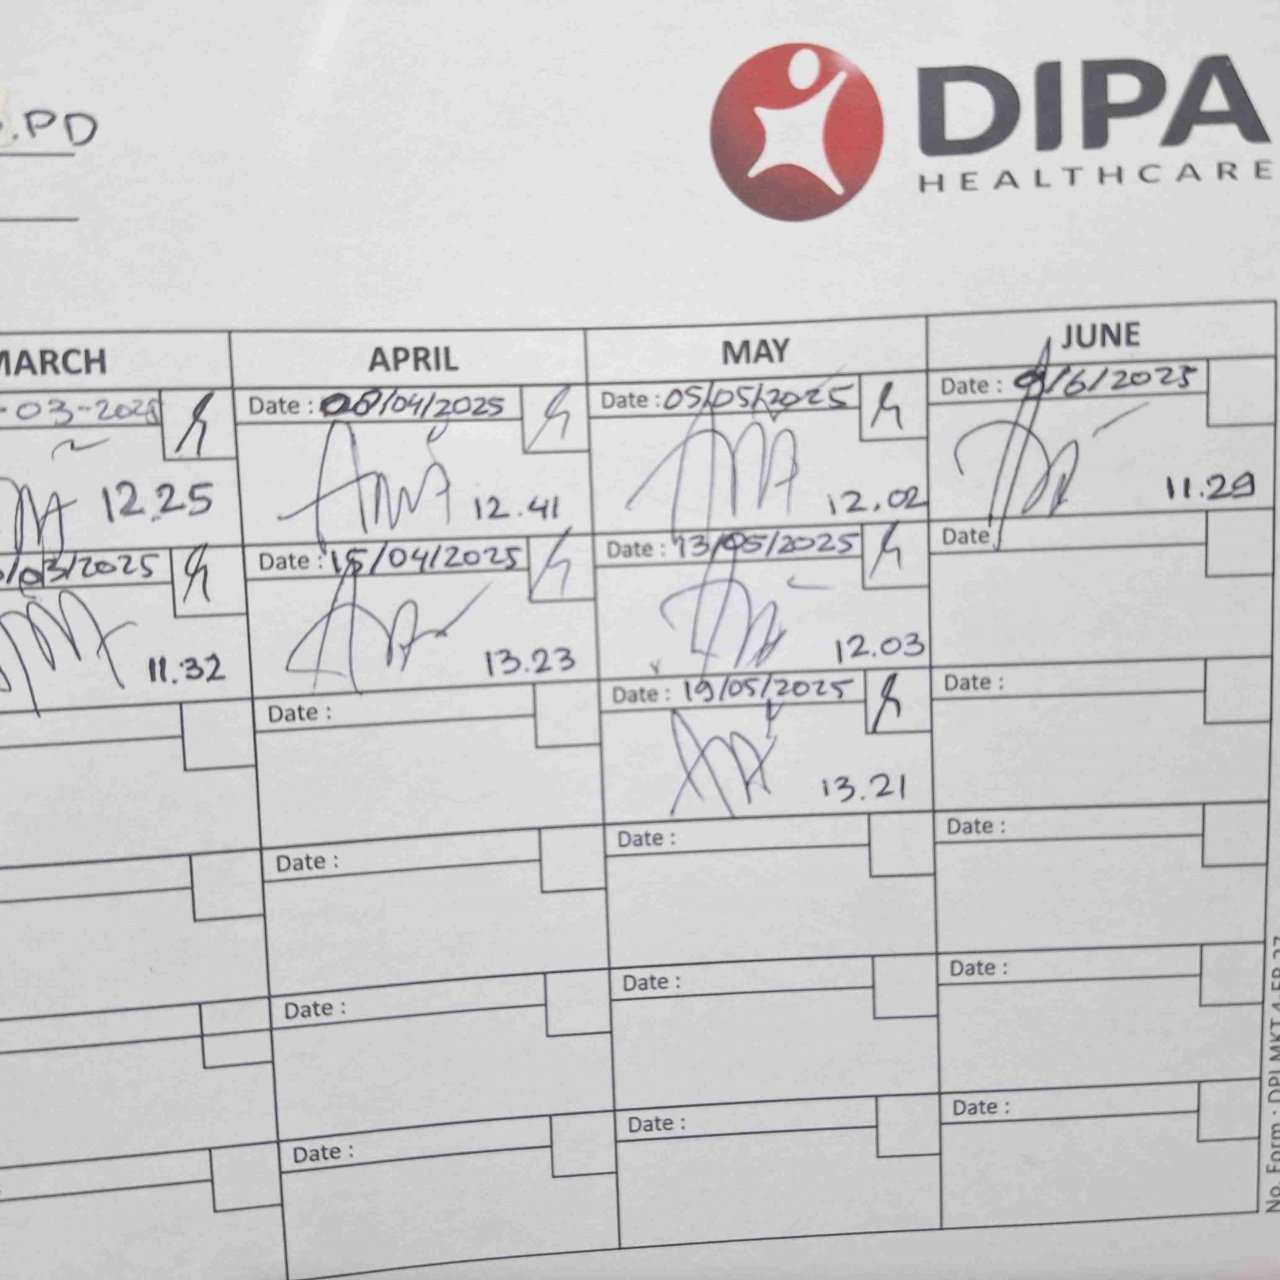 .PD
DIPA
HEALTHCARE
MARCH
APRIL
MAY
JUNE
-03-2025
Date : 08/04/2025
Date : 05/05/2025
Date : 9/6/2025
12.25
12.41
12.02
11.29
/03/2025
Date : 15/04/2025
Date : 13/05/2025
Date
11.32
13.23
12.03
Date :
Date : 19/05/2025
Date :
13.21
Date :
Date :
Date :
Date :
Date :
Date :
Date :
Date :
Date :
No. Form : DPI.MKT.4.FR.27